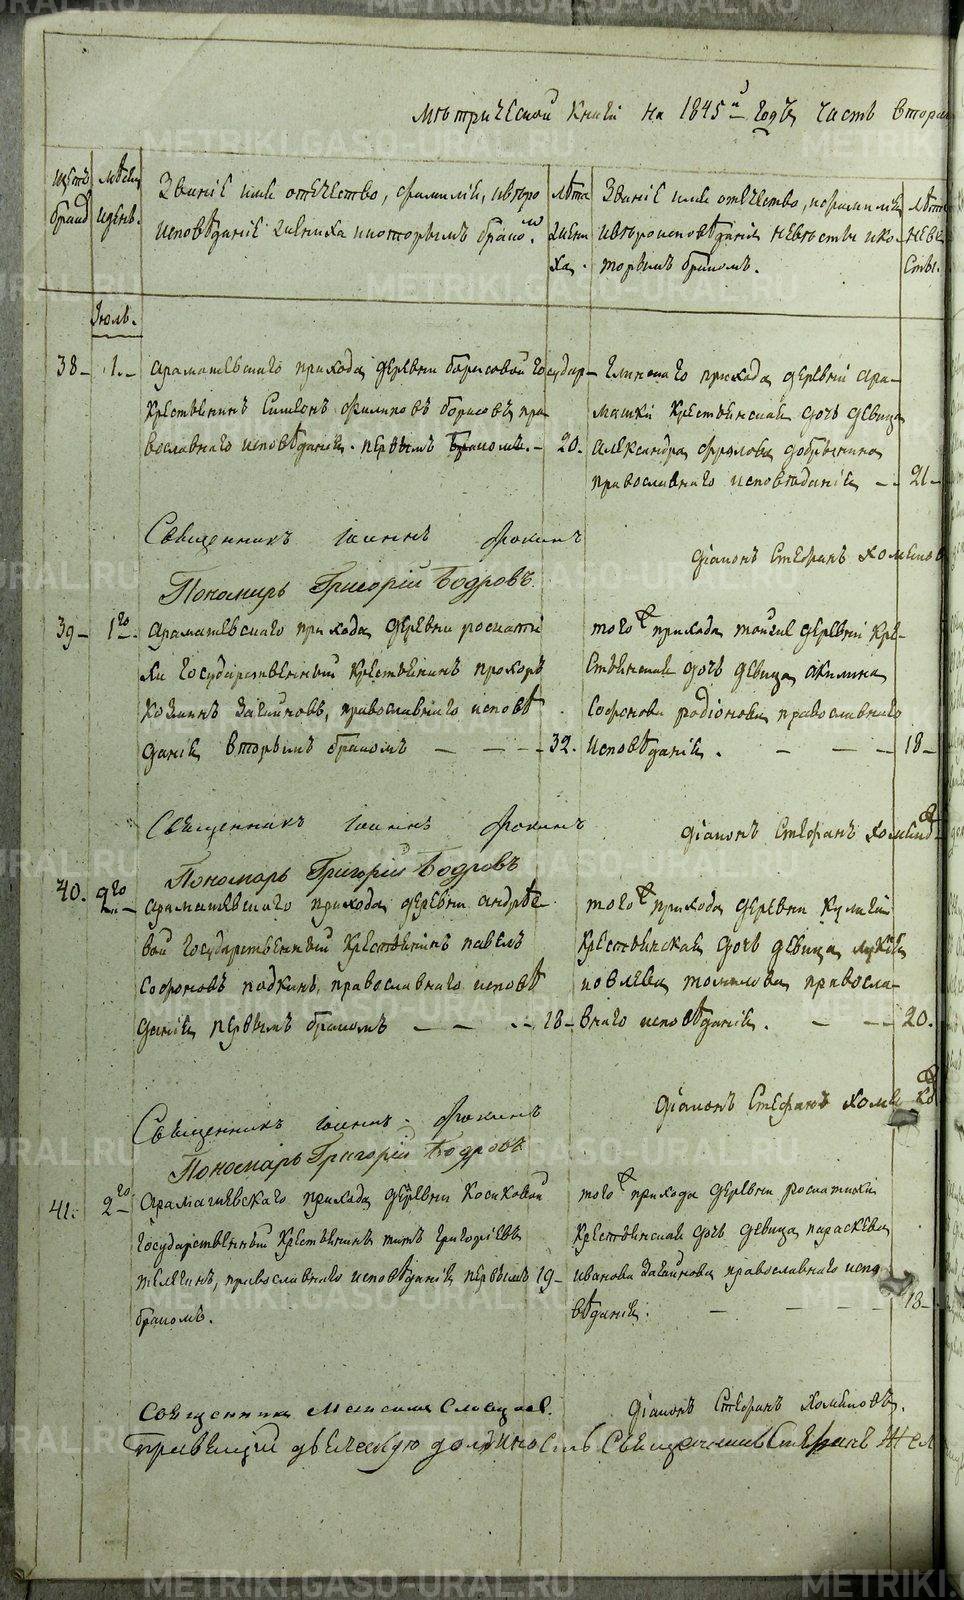 Метрической книги на 1845й годъ часть втора
Щетъ браковъ
Мѣсяц и день.
Званіе имя отечество, фамиліи, и вѣро
исповѣданіе жениха и которымъ брако.
лѣта жени ха.
Званіе имя отечество, и фамиліи,
и вѣроисповѣданія невѣсты и ко
торымъ бракомъ.
лѣта неве сты.
Июль.
38 1. Арамашевскаго прихода деревни Борисовой Государ
крестьянинъ Симеонъ Филиповъ Борисовъ пра
вославнаго исповѣданія. первымъ бракомъ. 20.
Глинскаго прихода деревни Ара
машки крестьянская дочь девица
Александра Фролова Добрынина
православнаго исповѣданія 21
Священникъ Іоаннъ
діаконъ Стефанъ Хомяков
Пономарь Григорій Бодровъ
39 1го Арамашевскаго прихода деревни Роскати
хи государственный крестьянинъ Прохоръ
Козминъ Загайновъ, православнаго исповѣ
данія вторымъ бракомъ 32.
того прихода тойже деревни кре
стьянская дочь девица Акилина
Софонова Родіонова православнаго
исповѣданія. 18
Священникъ Іоаннъ
діаконъ Стефанъ
Пономарь Григорій Бодровъ
40. 2го Арамашевскаго прихода деревни Андрѣе
вой государственный крестьянинъ Павелъ
Софоновъ Подкинъ, православнаго исповѣ
данія первымъ бракомъ 18
того прихода деревни Кулиги
крестьянская дочь девица
Іовлева Томилова правосла
внаго исповѣданія. 20.
діаконъ Стефанъ
Священникъ Іоаннъ
Пономарь Григорій Бодровъ
41. 2го Арамашевскаго прихода деревни Косиковой
государственный крестьянинъ Титъ Григоріевъ
Телегинъ, православнаго исповѣданія первымъ 19
бракомъ.
того прихода деревни Роскатихи
крестьянская дочь девица Параскева
Иванова Загайнова православнаго испо
вѣданія. 18
Священникъ Словцовъ.
діаконъ Стефанъ Хомяковъ.
должность Священникъ Стефанъ
METRIKI.GASO-URAL.RU